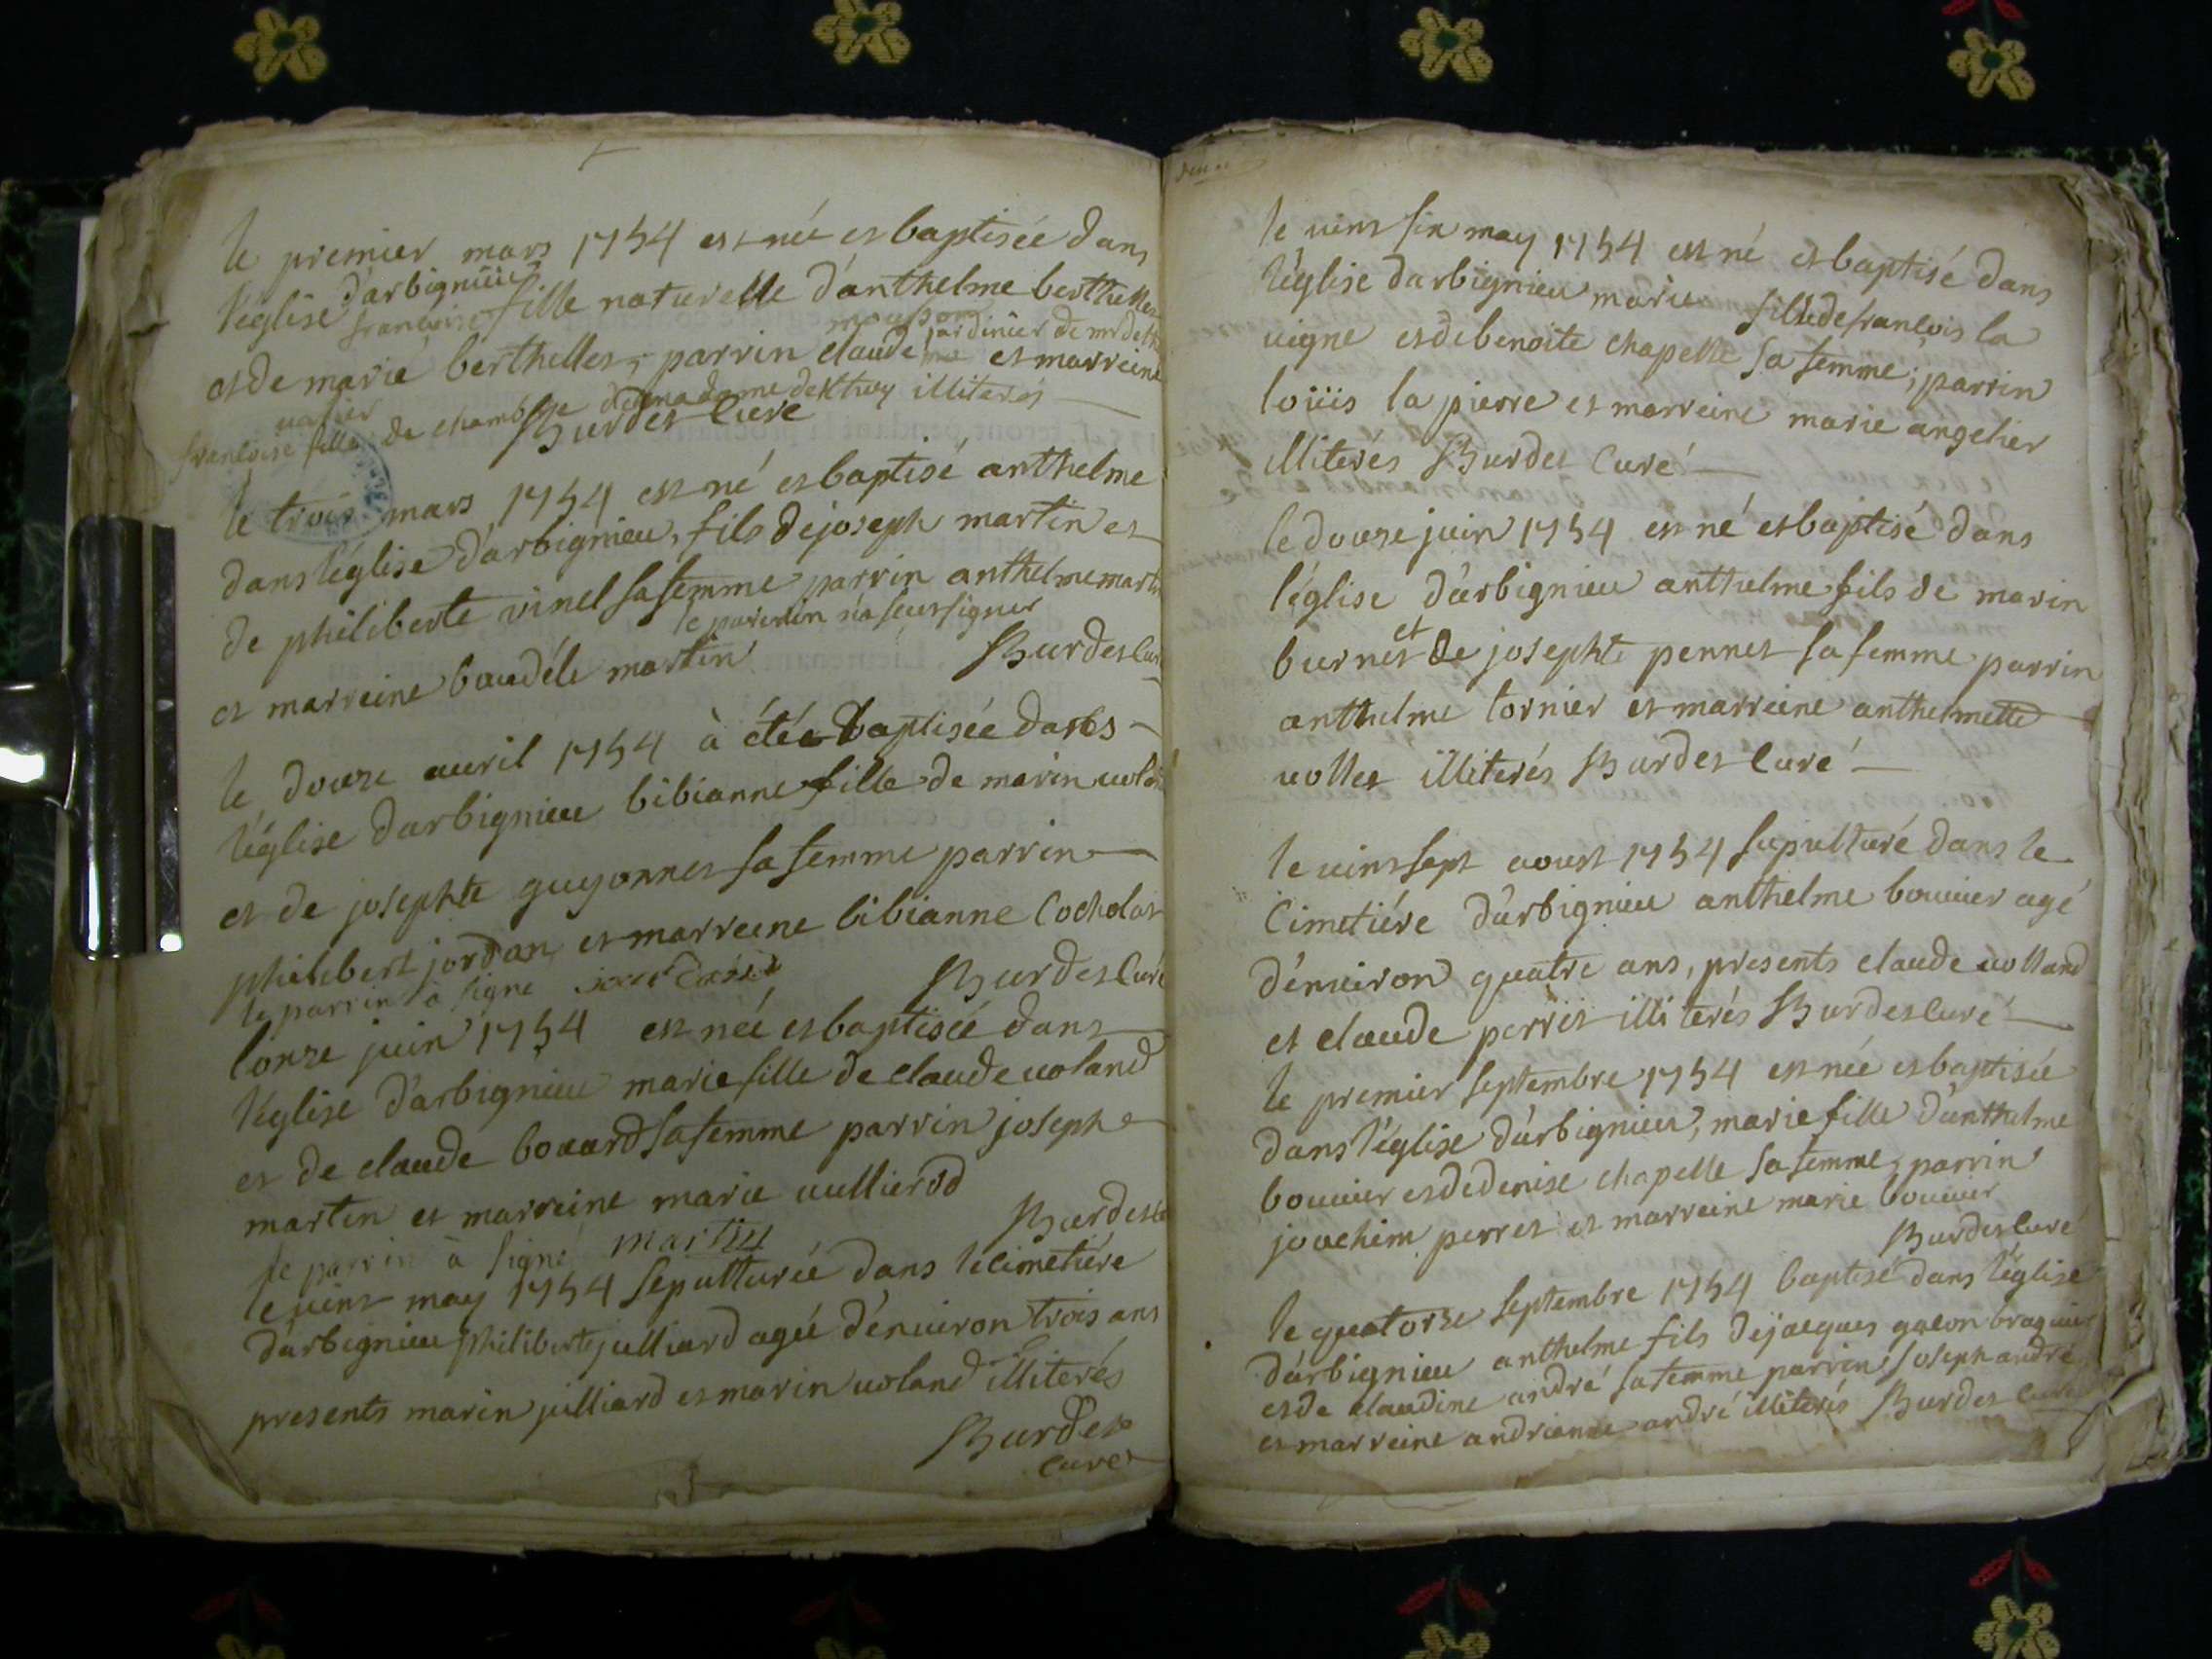 le premier mars 1754 est née et baptisée dans
l'église d'arbignieu françoise fille naturelle d'anthelme berthelles
et de marie berthelles, parrin claude mousson jardinier de mr de et marreine
françoise fille de chambre de madame illiterés
Burdet Curé
le trois mars 1754 est né et baptisé anthelme
dans l'église d'arbignieu, fils de joseph martin et
de philiberte vinel sa femme parrin anthelme martin
et marreine baudéle martin le parrein n'a sceut signer
Burdet Curé
le douze auril 1754 à étée baptisée dans
l'église darbignieu bibianne fille de marin uoland
et de josephte guyonnet sa femme parrin
philibert jordan et marreine bibianne Cocholat
le parrin à signé
Burdet Curé
l'onze juin 1754 est née et baptisée dans
l'église d'arbignieu marie fille de claude uoland
et de claude bouard sa femme parrin joseph
martin et marreine marie uullierod
le parrin à signé martin
Burdet
le uint may 1754 sepulturée dans le cimetiére
d'arbignieu philiberte julliard agée d'enuiron trois ans
presents marin julliard et marin uoland illiterés
Burdet
Curé
le uint six may 1754 est né et baptisé dans
l'église darbignieu marie fille de françois la
uigne et de benoite chapelle sa femme; parrin
loüis la pierre et marreine marie angelier
illiterés Burdet Curé
le douze juin 1754 est né et baptisé dans
l'église d'arbignieu anthelme fils de marin
burnet et de josephte pennet sa femme parrin
anthelme tornier et marreine anthelmette
uollet illiterés Burdet Curé
le uint sept aoust 1754 sepulturé dans le
Cimetiére d'arbignieu anthelme bouuier agé
d'enuiron quatre ans, presents claude uolland
et claude perret illiterés Burdet Curé
le premier septembre 1754 est née et baptisée
dans l'église d'arbignieu, marie fille d'anthelme
bouuier et de denise chapelle sa femme, parrin
joachim perret et marreine marie bouuier
Burdet Curé
le quatorze septembre 1754 baptisé dans l'église
d'arbignieu anthelme fils de jacques
et de claudine andré sa femme parrin joseph andré
et marreine andrianne andré illiterés Burdet Curé